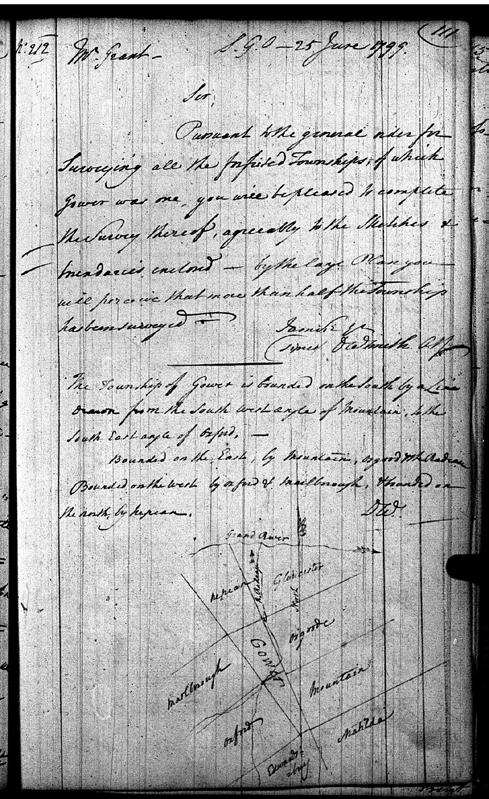 111
No. 212
Mr. Grant — S.G.O — 25 June 1799.
Sir,
Pursuant to the general order for
Surveying all the forfeited Townships, of which
Gower was one, you will be pleased to complete
the Survey thereof, agreeably to the Sketches &
boundaries enclosed — by the large Plan you
will perceive that more than half the Township
has been surveyed
signed
The Township of Gower is bounded on the South by a Line
drawn from the South West angle of Mountain, to the
South East angle of Oxford, —
Bounded on the East, by Mountain, Osgood & the Radeau
Bounded on the west by Oxford & Marlborough, & bounded on
the north, by Nepean.
Grand River
Nepean
Gloucester
North
Gower
Osgoode
Marlborough
Mountain
Oxford
Matilda
Edwards-
burg